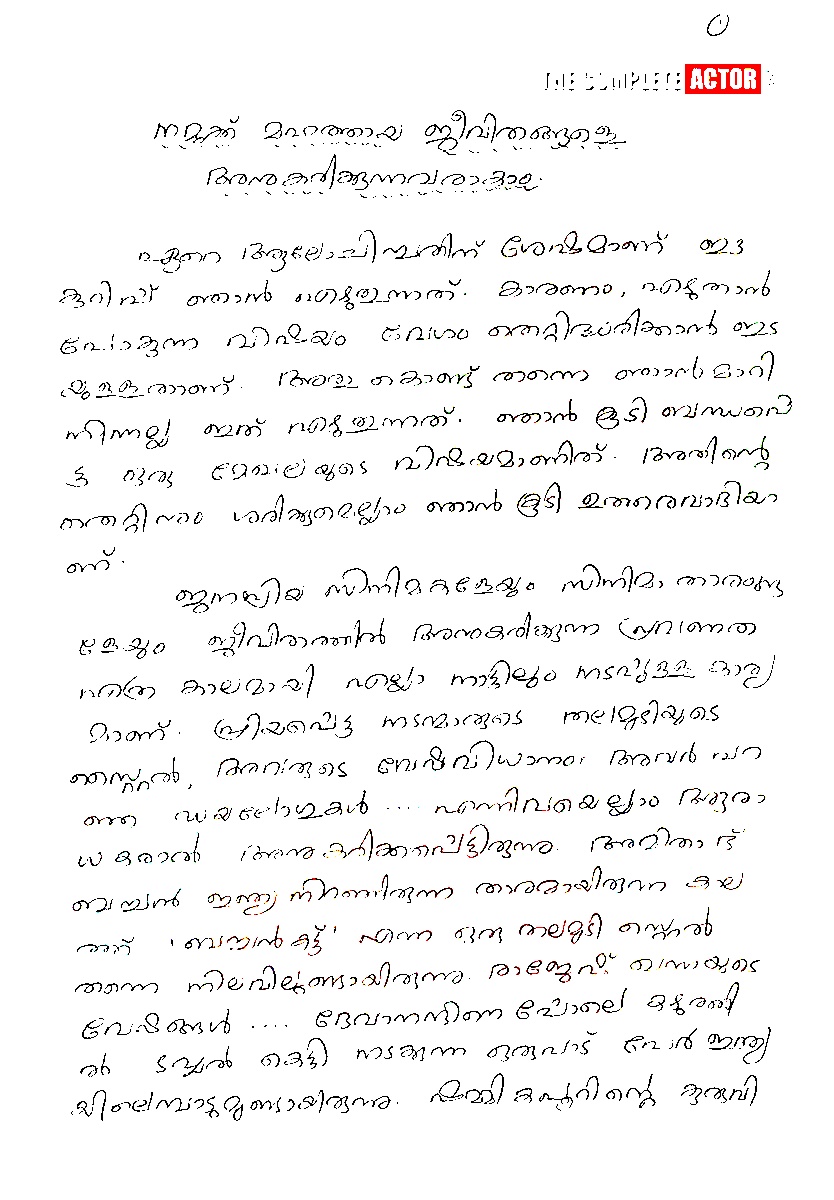 THE COMPLETE ACTOR
നമുക്ക് മഹത്തായ ജീവിതങ്ങളെ
അനുകരിക്കുന്നവരാകാം
ഏറെ ആലോചിച്ചതിന് ശേഷമാണ് ഈ
കുറിപ്പ് ഞാൻ എഴുതുന്നത്. കാരണം, എഴുതാൻ
പോകുന്ന വിഷയം വേഗം തെറ്റിദ്ധരിക്കാൻ ഇട
യുള്ളതാണ്. അതു കൊണ്ട് തന്നെ ഞാൻ മാറി
നിന്നല്ല ഇത് എഴുതുന്നത്. ഞാൻ കൂടി ബന്ധപ്പെ
ട്ട ഒരു മേഖലയുടെ വിഷയമാണിത്. അതിന്റെ
തെറ്റിനും ശരിക്കുമെല്ലാം ഞാൻ കൂടി ഉത്തരവാദിയാ
ണ്.
ജനപ്രിയ സിനിമകളേയും സിനിമാ താരങ്ങ
ളേയും ജീവിതത്തിൽ അനുകരിക്കുന്ന പ്രവണത
എത്ര കാലമായി എല്ലാ നാട്ടിലും നടപ്പുള്ള കാര്യ
മാണ്. പ്രിയപ്പെട്ട നടന്മാരുടെ തലമുടിയുടെ
സ്റ്റൈൽ, അവരുടെ വേഷവിധാനം അവർ പറ
ഞ്ഞ ഡയലോഗുകൾ .... എന്നിവയെല്ലാം ആരാ
ധകരാൽ അനുകരിക്കപ്പെട്ടിരുന്നു. അമിതാഭ്
ബച്ചൻ ഇന്ത്യ നിറഞ്ഞിരുന്ന താരമായിരുന്ന കാല
ത്ത് 'ബച്ചൻകട്ട്' എന്ന ഒരു തലമുടി സ്റ്റൈൽ
തന്നെ നിലവിലുണ്ടായിരുന്നു. രാജേഷ് ഖന്നയുടെ
വേഷങ്ങൾ .... ദേവാനന്ദിനെ പോലെ കഴുത്തി
ൽ ടവ്വൽ കെട്ടി നടക്കുന്ന ഒരുപാട് പേർ ഇന്ത്യ
യിലെമ്പാടുമുണ്ടായിരുന്നു. ഷമ്മി കപൂറിന്റെ കുരുവി